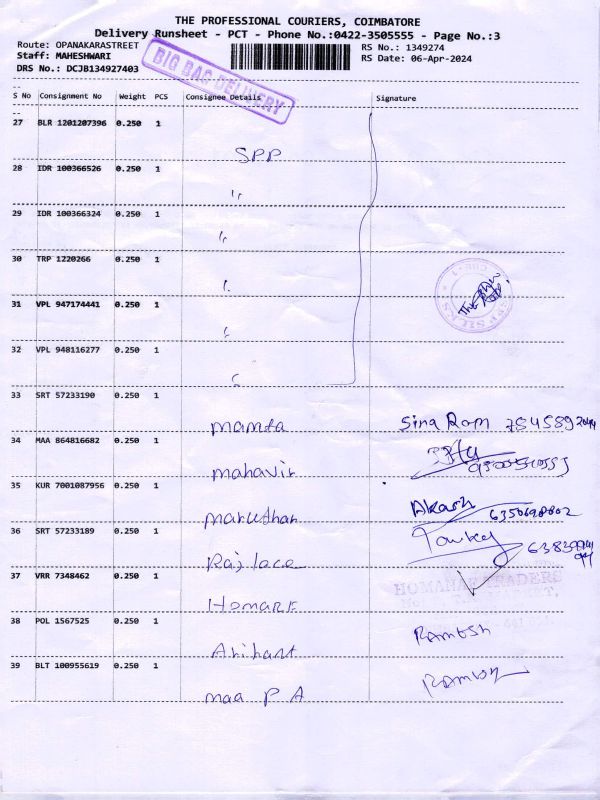 THE PROFESSIONAL COURIERS, COIMBATORE
Delivery Runsheet - PCT - Phone No.:0422-3505555 - Page No.:3
Route: OPANAKARASTREET RS No.: 1349274
Staff: MAHESHWARI RS Date: 06-Apr-2024
DRS No.: DCJB134927403
BIG BAG DELIVERY
S No Consignment No Weight PCS Consignee Details Signature
27 BLR 1201207396 0.250 1
SPP
28 IDR 100366526 0.250 1
29 IDR 100366324 0.250 1
30 TRP 1220266 0.250 1
31 VPL 947174441 0.250 1
32 VPL 948116277 0.250 1
33 SRT 57233190 0.250 1
mamta Sina Ram
34 MAA 864816682 0.250 1
mahavir
35 KUR 7001087956 0.250 1
maruthar Akash
36 SRT 57233189 0.250 1
Raj lace
37 VRR 7348462 0.250 1
38 POL 1567525 0.250 1
Arihant Ramesh
39 BLT 100955619 0.250 1
maa P A